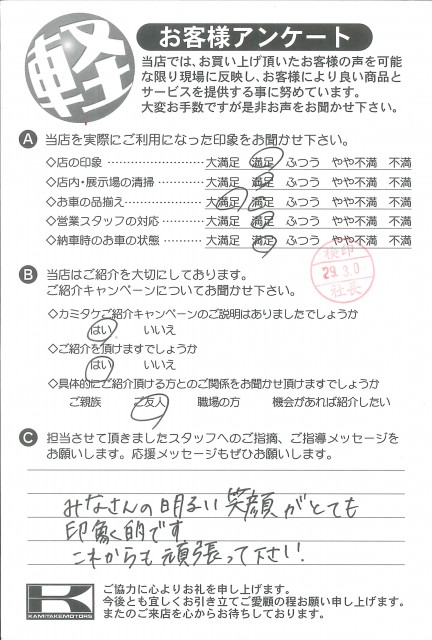 軽
お客様アンケート
当店では、お買い上げ頂いたお客様の声を可能
な限り現場に反映し、お客様により良い商品と
サービスを提供する事に努めています。
大変お手数ですが是非お声をお聞かせ下さい。
A 当店を実際にご利用になった印象をお聞かせ下さい。
◇店の印象 ………………… 大満足 満足 ふつう やや不満 不満
◇店内・展示場の清掃 ………… 大満足 満足 ふつう やや不満 不満
◇お車の品揃え ………………… 大満足 満足 ふつう やや不満 不満
◇営業スタッフの対応 ………… 大満足 満足 ふつう やや不満 不満
◇納車時のお車の状態 ………… 大満足 満足 ふつう やや不満 不満
検印
29.3.0
社長
B 当店はご紹介を大切にしております。
ご紹介キャンペーンについてお聞かせ下さい。
◇カミタケご紹介キャンペーンのご説明はありましたでしょうか
はい いいえ
◇ご紹介を頂けますでしょうか
はい いいえ
◇具体的にご紹介頂ける方とのご関係をお聞かせ頂けますでしょうか
ご親族 ご友人 職場の方 機会があれば紹介したい
C 担当させて頂きましたスタッフへのご指摘、ご指導メッセージを
お願いします。応援メッセージもぜひお願いします。
みなさんの明るい笑顔がとても
印象的です
これからも頑張って下さい!
K
KAMITAKEMOTORS
ご協力に心よりお礼を申し上げます。
今後とも宜しくお引き立てご愛顧の程お願い申し上げます。
またのご来店を心からお待ちしております。